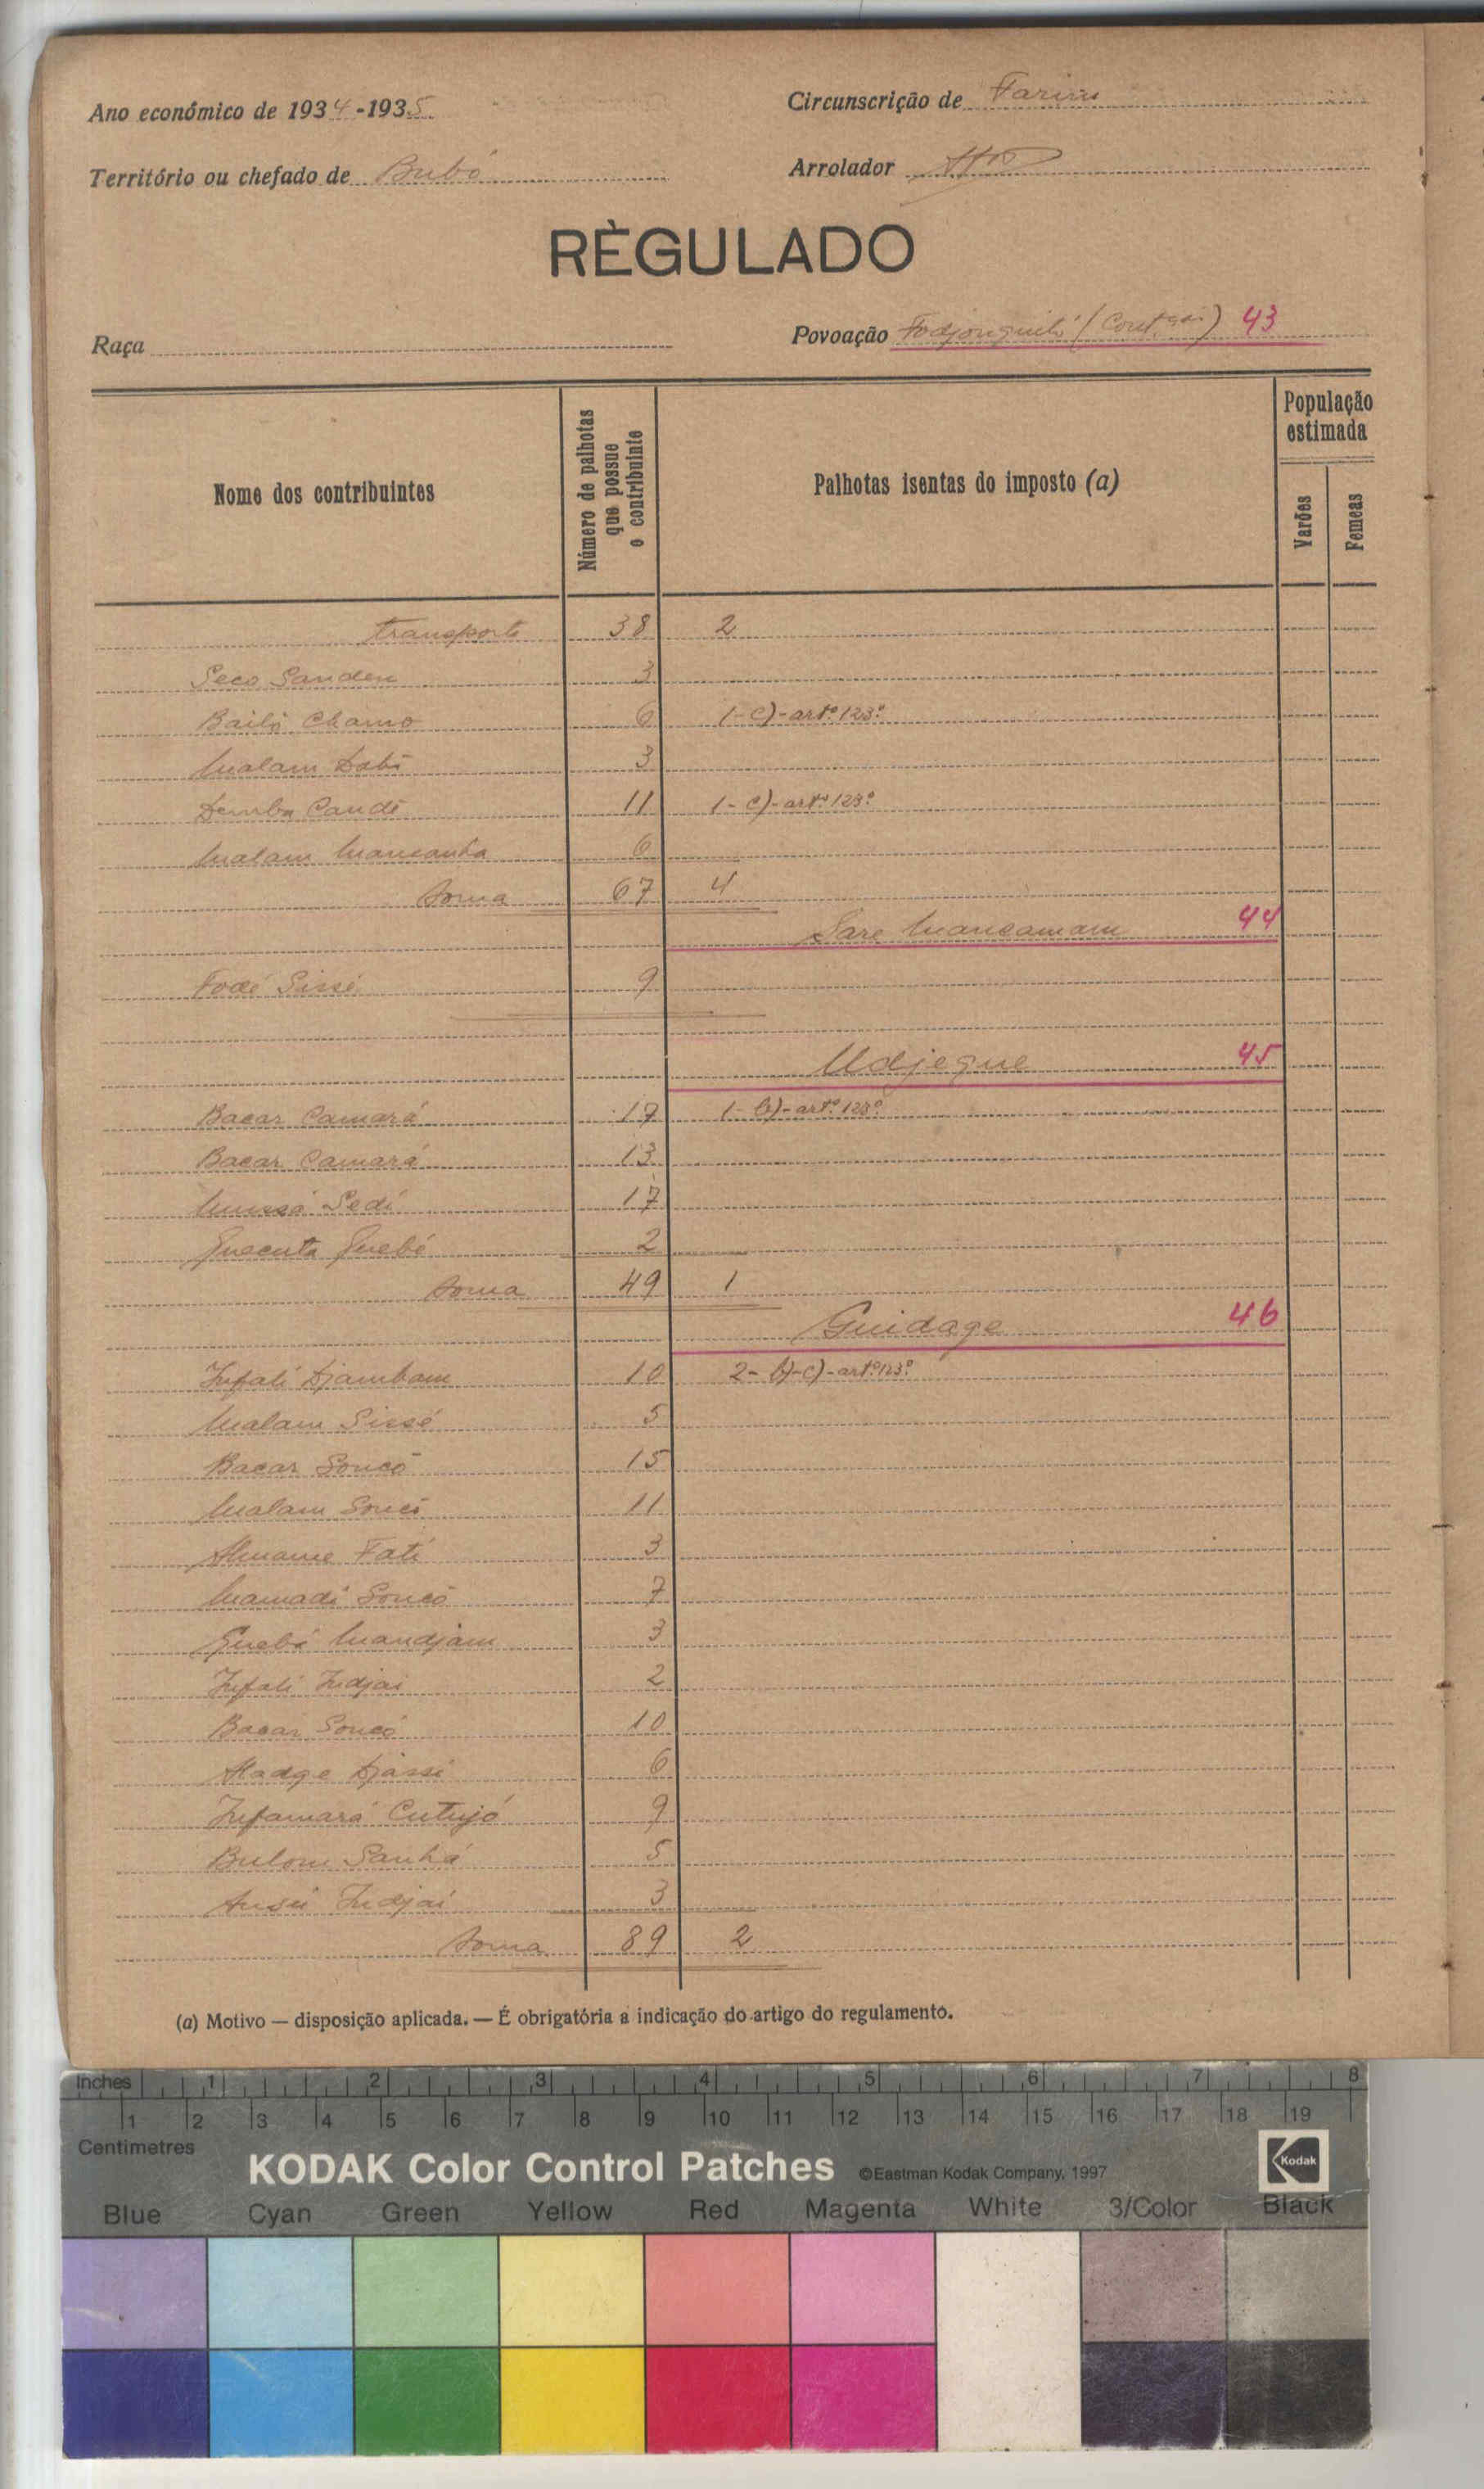 Ano económico de 1934-1935
Circunscrição de Farim
Território ou chefado de Bubo
Arrolador
RÈGULADO
Raça
Povoação 43
Nome dos contribuintes
Número de palhotas que possue o contribuinte
Palhotas isentas do imposto (a)
População estimada
Varões
Femeas
Transporte 38 2
Seco Sanden 3
Bailó Chamo 6 1-c)-artº 123º
Malam Dabó 3
Demba Candé 11 1-c)-artº 123º
Malam Mancanha 6
Soma 67 4
Sare Mancamam 44
Fodé Sissé 9
Udjeque 45
Bacar Camará 17 1-b)-artº 123º
Bacar Camará 13
Mussá Sedi 17
Quecuta Quebá 2
Soma 49 1
Guidage 46
Infali Djambam 10 2-b)-c)-artº 123º
Malam Sissé 5
Bacar Soncó 15
Malam Soncó 11
Almame Fati 3
Mamadi Soncó 7
Quebá Mandjam 3
Infali Indjai 2
Bacar Soncó 10
Aladge Djassi 6
Infamará Cutujó 9
Bulom Sanhá 5
Ansú Indjai 3
Soma 89 2
(a) Motivo — disposição aplicada. — É obrigatória a indicação do artigo do regulamento.
Inches 1 2 3 4 5 6 7 8
1 2 3 4 5 6 7 8 9 10 11 12 13 14 15 16 17 18 19
Centimetres
KODAK Color Control Patches ©Eastman Kodak Company, 1997 Kodak
Blue Cyan Green Yellow Red Magenta White 3/Color Black